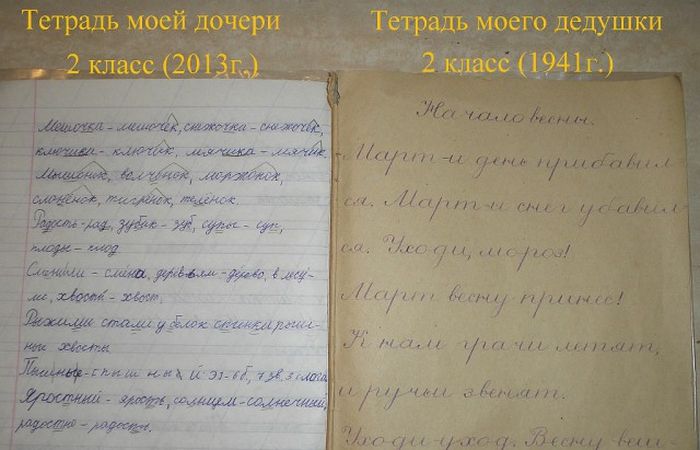 Тетрадь моей дочери
2 класс (2013г.)
Тетрадь моего дедушки
2 класс (1941г.)
Мешочка – мешочек, снежочка – снежочек,
ключика – ключик, мячика – мячик.
Мышонок, волчонок, моржонок,
слонёнок, тигрёнок, телёнок.
Радость – рад, зубик – зуб, супы – суп,
плоды – плод
– дерево, в лесу
ли, хвосты – хвост.
Рыжими стали у белок спинки пыш-
ные хвосты
Пышные –
Яростный – ярость, солнцем – солнечный,
радостно – радость.
Начало весны.
Март – и день прибавил-
ся. Март – и снег убавил-
ся. Уходи, мороз!
Март весну принес!
К нам грачи летят,
и ручьи звенят.
Уходи – уход. Весну вен-